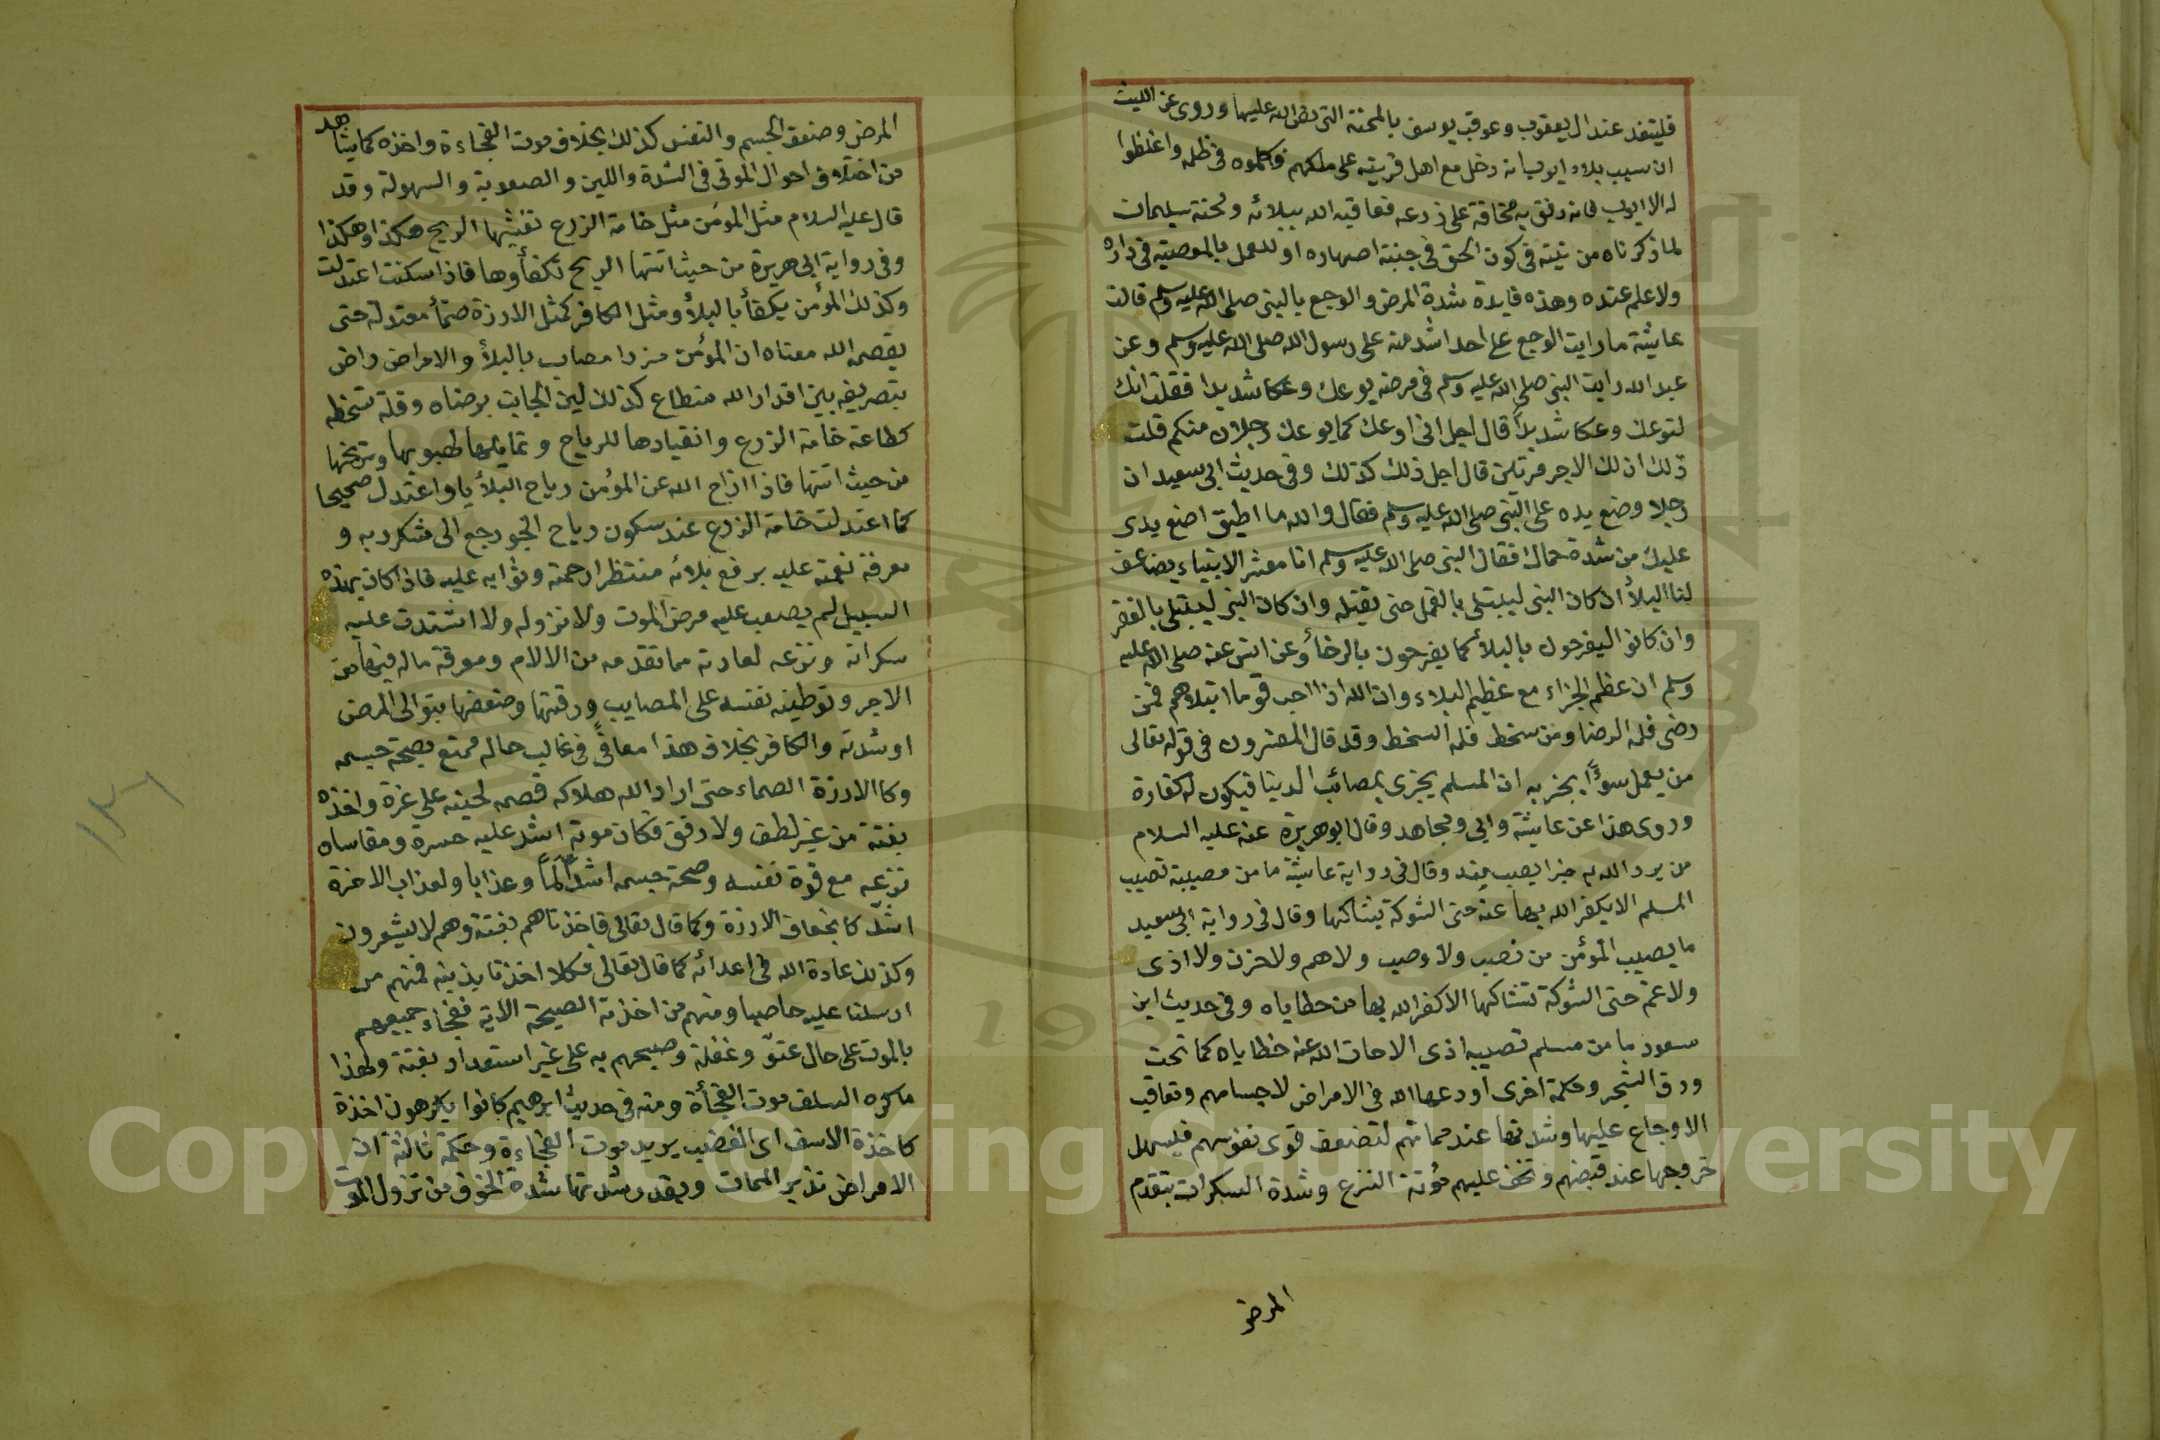 فليتغد عند ال يعقوب وعوقب يوسف بالمحنة التى نص الله عليها وروى عن الليث
ان سبب بلاء ايوب انه دخل مع اهل قريته على ملكهم فكلموه فى ظلمه واغلظوا
له الا ايوب فانه رفق به مخافة على زرعه فعاقبه الله ببلائه ومحنة سليمان
لما ذكرناه من نيته فى كون الحق فى جنبة اصهاره او للعمل بالمعصية فى داره
ولا علم عنده وهذه فايدة شدة المرض والوجع بالنبى صلى الله عليه وسلم قالت
عايشة ما رايت الوجع على احد اشد منه على رسول الله صلى الله عليه وسلم وعن
عبد الله رايت النبى صلى الله عليه وسلم فى مرضه يوعك وعكا شديدا فقلت انك
لتوعك وعكا شديدا قال اجل انى اوعك كما يوعك رجلان منكم قلت
ذلك ان لك الاجر مرتين قال اجل ذلك كذلك وفى حديث ابى سعيد ان
رجلا وضع يده على النبى صلى الله عليه وسلم فقال والله ما اطيق اضع يدى
عليك من شدة حماك فقال النبى صلى الله عليه وسلم انا معشر الانبياء يضاعف
لنا البلأ ان كان النبى ليبتلى بالقمل حتى يقتله وان كان النبى ليبتلى بالفقر
وان كانوا ليفرحون بالبلأ كما يفرحون بالرخأ وعن انس عنه صلى الله عليه
وسلم ان عظم الجزاء مع عظيم البلاء وان الله اذا احب قوما ابتلاهم فمن
رضى فله الرضا ومن سخط فله السخط وقد قال المفسرون فى قوله تعالى
من يعمل سوءًا يجز به ان المسلم يجزى بمصائب الدنيا فيكون له كفارة
وروى هذا عن عايشة وابى ومجاهد وقال ابو هريرة عنه عليه السلام
من يرد الله به خيرا يصب منه وقال فى رواية عايشة ما من مصيبة تصيب
المسلم الا يكفر الله بها عنه حتى الشوكة يشاكها وقال فى رواية ابى سعيد
ما يصيب المؤمن من نصب ولا وصب ولا هم ولا حزن ولا اذى
ولا غم حتى الشوكة تشاكها الا كفر الله بها من خطاياه وفى حديث ابن
مسعود ما من مسلم تصيبه اذى الا حات الله عنه خطاياه كما تحت
ورق الشجر وحكمة اخرى اودعها الله فى الامراض لاجسامهم وتعاقب
الاوجاع عليها وشدتها عند مماتهم لتضعف قوى نفوسهم فيسهل
خروجها عند قبضهم وتخف عليهم مؤنة النزع وشدة السكرات بتقدم
المرض
المرض وضعف الجسم والنفس كذلك بخلاف موت الفجاءة واخذه كما يشاهد
من اختلاف احوال الموتى فى الشدة واللين والصعوبة والسهولة وقد
قال عليه السلام مثل المؤمن مثل خامة الزرع تفيئها الريح هكذا وهكذا
وفى رواية ابى هريرة من حيث اتتها الريح تكفأوها فاذا سكنت اعتدلت
وكذلك المؤمن يكفأ بالبلأ ومثل الكافر كمثل الارزة صمأ معتدلة حتى
يقصمه الله معناه ان المؤمن مرزا مصاب بالبلأ والامراض راض
بتصريفه بين اقدار الله منطاع كذلك لين الجانب برضاه وقلة سخطه
كطاعة خامة الزرع وانقيادها للرياح وتمايلها لهبوبها وترنحها
من حيث اتتها فاذا ازاح الله عن المؤمن رياح البلأ يا واعتدل صحيحا
كما اعتدلت خامة الزرع عند سكون رياح الجو رجع الى شكر ربه و
معرفة نعمته عليه برفع بلائه منتظرا رحمته وثوابه عليه فاذا كان بهذه
السبيل لم يصعب عليه مرض الموت ولا نزوله ولا اشتدت عليه
سكراته ونزعه لعادته مما تقدمه من الالام ومعرفة ماله فيها من
الاجر وتوطينه نفسه على المصايب ورقتها وضعفها بتوالى المرض
او شدته والكافر بخلاف هذا معافى فى غالب حاله ممتع بصحة جسمه
وكا الارزة الصماء حتى اراد الله هلاكه قصمه لحينه على غرة واخذه
بغتة من غير لطف ولا رفق فكان موته اشد عليه حسرة ومقاساه
نزعه مع قوة نفسه وصحة جسمه اشد ألمًا وعذابا ولعذاب الاخرة
اشد كانجعاف الارزة وكما قال تعالى فاخذناهم بغتة وهم لا يشعرون
وكذلك عادة الله فى اعدائه كما قال تعالى فكلا اخذنا بذنبه فمنهم من
ارسلنا عليه حاصبا ومنهم من اخذته الصيحة الاية ففجاء جميعهم
بالموت على حال عتو وغفلة وصبحهم به على غير استعداد بغتة ولهذا
ما كره السلف موت الفجأة ومنه فى حديث ابرهيم كانوا يكرهون اخذة
كاخذة الاسف اى الغضب يريد موت الفجاءة وحكمة ثالثة ان
الامراض نذير الممات وبقدر شدتها شدة الخوف من نزول الموت
١٣٦
Copyright © King Saud University
1957